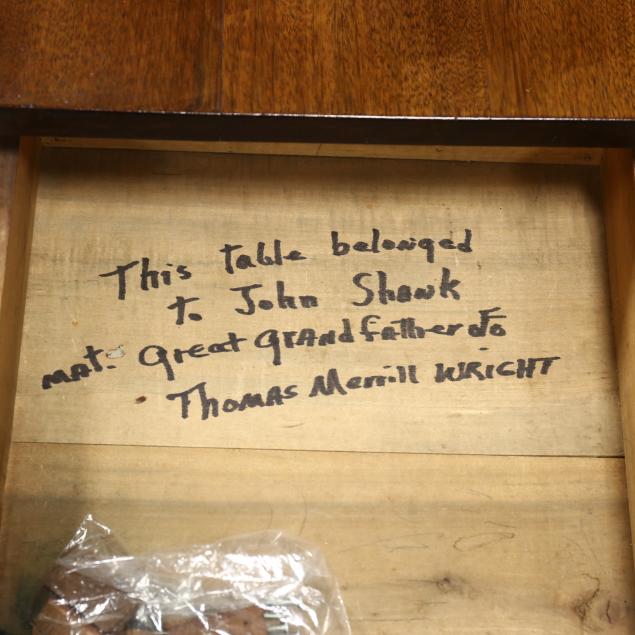 This table belonged
to John Shank
mat. Great Grandfather of
Thomas Merrill WRIGHT